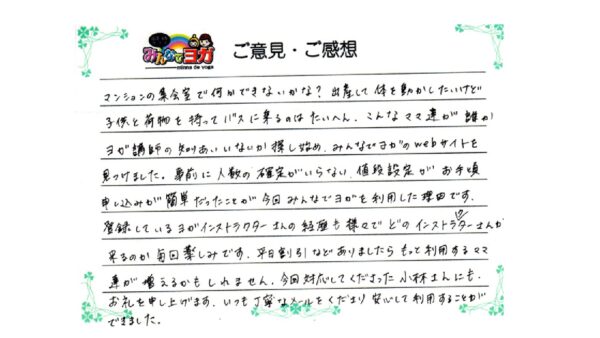 みんなでヨガ
minna de yoga
ご意見・ご感想
マンションの集会室で何かできないかな？ 出産して体を動かしたいけど
子供と荷物を持ってバスに乗るのはたいへん。こんなママ達が誰か
ヨガ講師の知りあいいないか探し始め、みんなでヨガのwebサイトを
見つけました。事前に人数の確定がいらない、値段設定がお手頃
申し込みが簡単だったことが今回みんなでヨガを利用した理由です。
登録しているヨガインストラクターさんの経歴も様々でどのインストラクターさんが
来るのか毎回楽しみです。平日割引などありましたらもっと利用するママ
達が増えるかもしれません。今回対応してくださった小林さんにも、
お礼を申し上げます。いつも丁寧なメールをくださり安心して利用することが
できました。